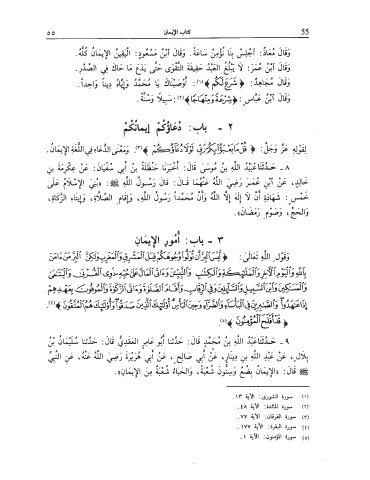 55
كتاب الإيمان
٥٥
وَقَالَ مُعَاذٌ: اجْلِسْ بِنَا نُؤْمِنْ سَاعَةً. وَقَالَ ابْنُ مَسْعُودٍ: الْيَقِينُ الْإِيمَانُ كُلُّهُ.
وَقَالَ ابْنُ عُمَرَ: لَا يَبْلُغُ الْعَبْدُ حَقِيقَةَ التَّقْوَى حَتَّى يَدَعَ مَا حَاكَ فِي الصَّدْرِ.
وَقَالَ مُجَاهِدٌ: ﴿شَرَعَ لَكُم﴾(١): أَوْصَيْنَاكَ يَا مُحَمَّدُ وَإِيَّاهُ دِيناً وَاحِداً.
وَقَالَ ابْنُ عَبَّاسٍ: ﴿شِرْعَةً وَمِنْهَاجًا﴾(٢): سَبِيلًا وَسُنَّةً.
٢ - باب: دُعَاؤُكُمْ إِيمَانُكُمْ
لِقَوْلِهِ عَزَّ وَجَلَّ: ﴿قُلْ مَا يَعْبَؤُا بِكُمْ رَبِّي لَوْلَا دُعَاؤُكُمْ﴾(٣). وَمَعْنَى الدُّعَاءِ فِي اللُّغَةِ الْإِيمَانُ.
٨ - حَدَّثَنَا عُبَيْدُ اللَّهِ بْنُ مُوسَى قَالَ: أَخْبَرَنَا حَنْظَلَةُ بْنُ أَبِي سُفْيَانَ: عَنْ عِكْرِمَةَ بْنِ
خَالِدٍ، عَنِ ابْنِ عُمَرَ رَضِيَ اللَّهُ عَنْهُمَا قَالَ: قَالَ رَسُولُ اللَّهِ ﷺ: «بُنِيَ الْإِسْلَامُ عَلَى
خَمْسٍ: شَهَادَةِ أَنْ لَا إِلَهَ إِلَّا اللَّهُ وَأَنَّ مُحَمَّداً رَسُولُ اللَّهِ، وَإِقَامِ الصَّلَاةِ، وَإِيتَاءِ الزَّكَاةِ،
وَالْحَجِّ، وَصَوْمِ رَمَضَانَ».
٣ - باب: أُمُورِ الْإِيمَانِ
وَقَوْلِ اللَّهِ تَعَالَى: ﴿لَيْسَ الْبِرَّ أَنْ تُوَلُّوا وُجُوهَكُمْ قِبَلَ الْمَشْرِقِ وَالْمَغْرِبِ وَلَكِنَّ الْبِرَّ مَنْ ءَامَنَ
بِاللَّهِ وَالْيَوْمِ الْآخِرِ وَالْمَلَائِكَةِ وَالْكِتَابِ وَالنَّبِيِّينَ وَءَاتَى الْمَالَ عَلَى حُبِّهِ ذَوِي الْقُرْبَى وَالْيَتَامَى
وَالْمَسَاكِينَ وَابْنَ السَّبِيلِ وَالسَّائِلِينَ وَفِي الرِّقَابِ وَأَقَامَ الصَّلَاةَ وَءَاتَى الزَّكَاةَ وَالْمُوفُونَ بِعَهْدِهِمْ
إِذَا عَاهَدُوا وَالصَّابِرِينَ فِي الْبَأْسَاءِ وَالضَّرَّاءِ وَحِينَ الْبَأْسِ أُولَئِكَ الَّذِينَ صَدَقُوا وَأُولَئِكَ هُمُ الْمُتَّقُونَ﴾(٤).
﴿قَدْ أَفْلَحَ الْمُؤْمِنُونَ﴾(٥).
٩ - حَدَّثَنَا عَبْدُ اللَّهِ بْنُ مُحَمَّدٍ قَالَ: حَدَّثَنَا أَبُو عَامِرٍ الْعَقَدِيُّ قَالَ: حَدَّثَنَا سُلَيْمَانُ بْنُ
بِلَالٍ، عَنْ عَبْدِ اللَّهِ بْنِ دِينَارٍ، عَنْ أَبِي صَالِحٍ، عَنْ أَبِي هُرَيْرَةَ رَضِيَ اللَّهُ عَنْهُ، عَنِ النَّبِيِّ
ﷺ قَالَ: «الْإِيمَانُ بِضْعٌ وَسِتُّونَ شُعْبَةً، وَالْحَيَاءُ شُعْبَةٌ مِنَ الْإِيمَانِ».
(١) سورة الشورى: الآية ١٣.
(٢) سورة المائدة: الآية ٤٨.
(٣) سورة الفرقان: الآية ٧٧.
(٤) سورة البقرة: الآية ١٧٧.
(٥) سورة المؤمنون: الآية ١.